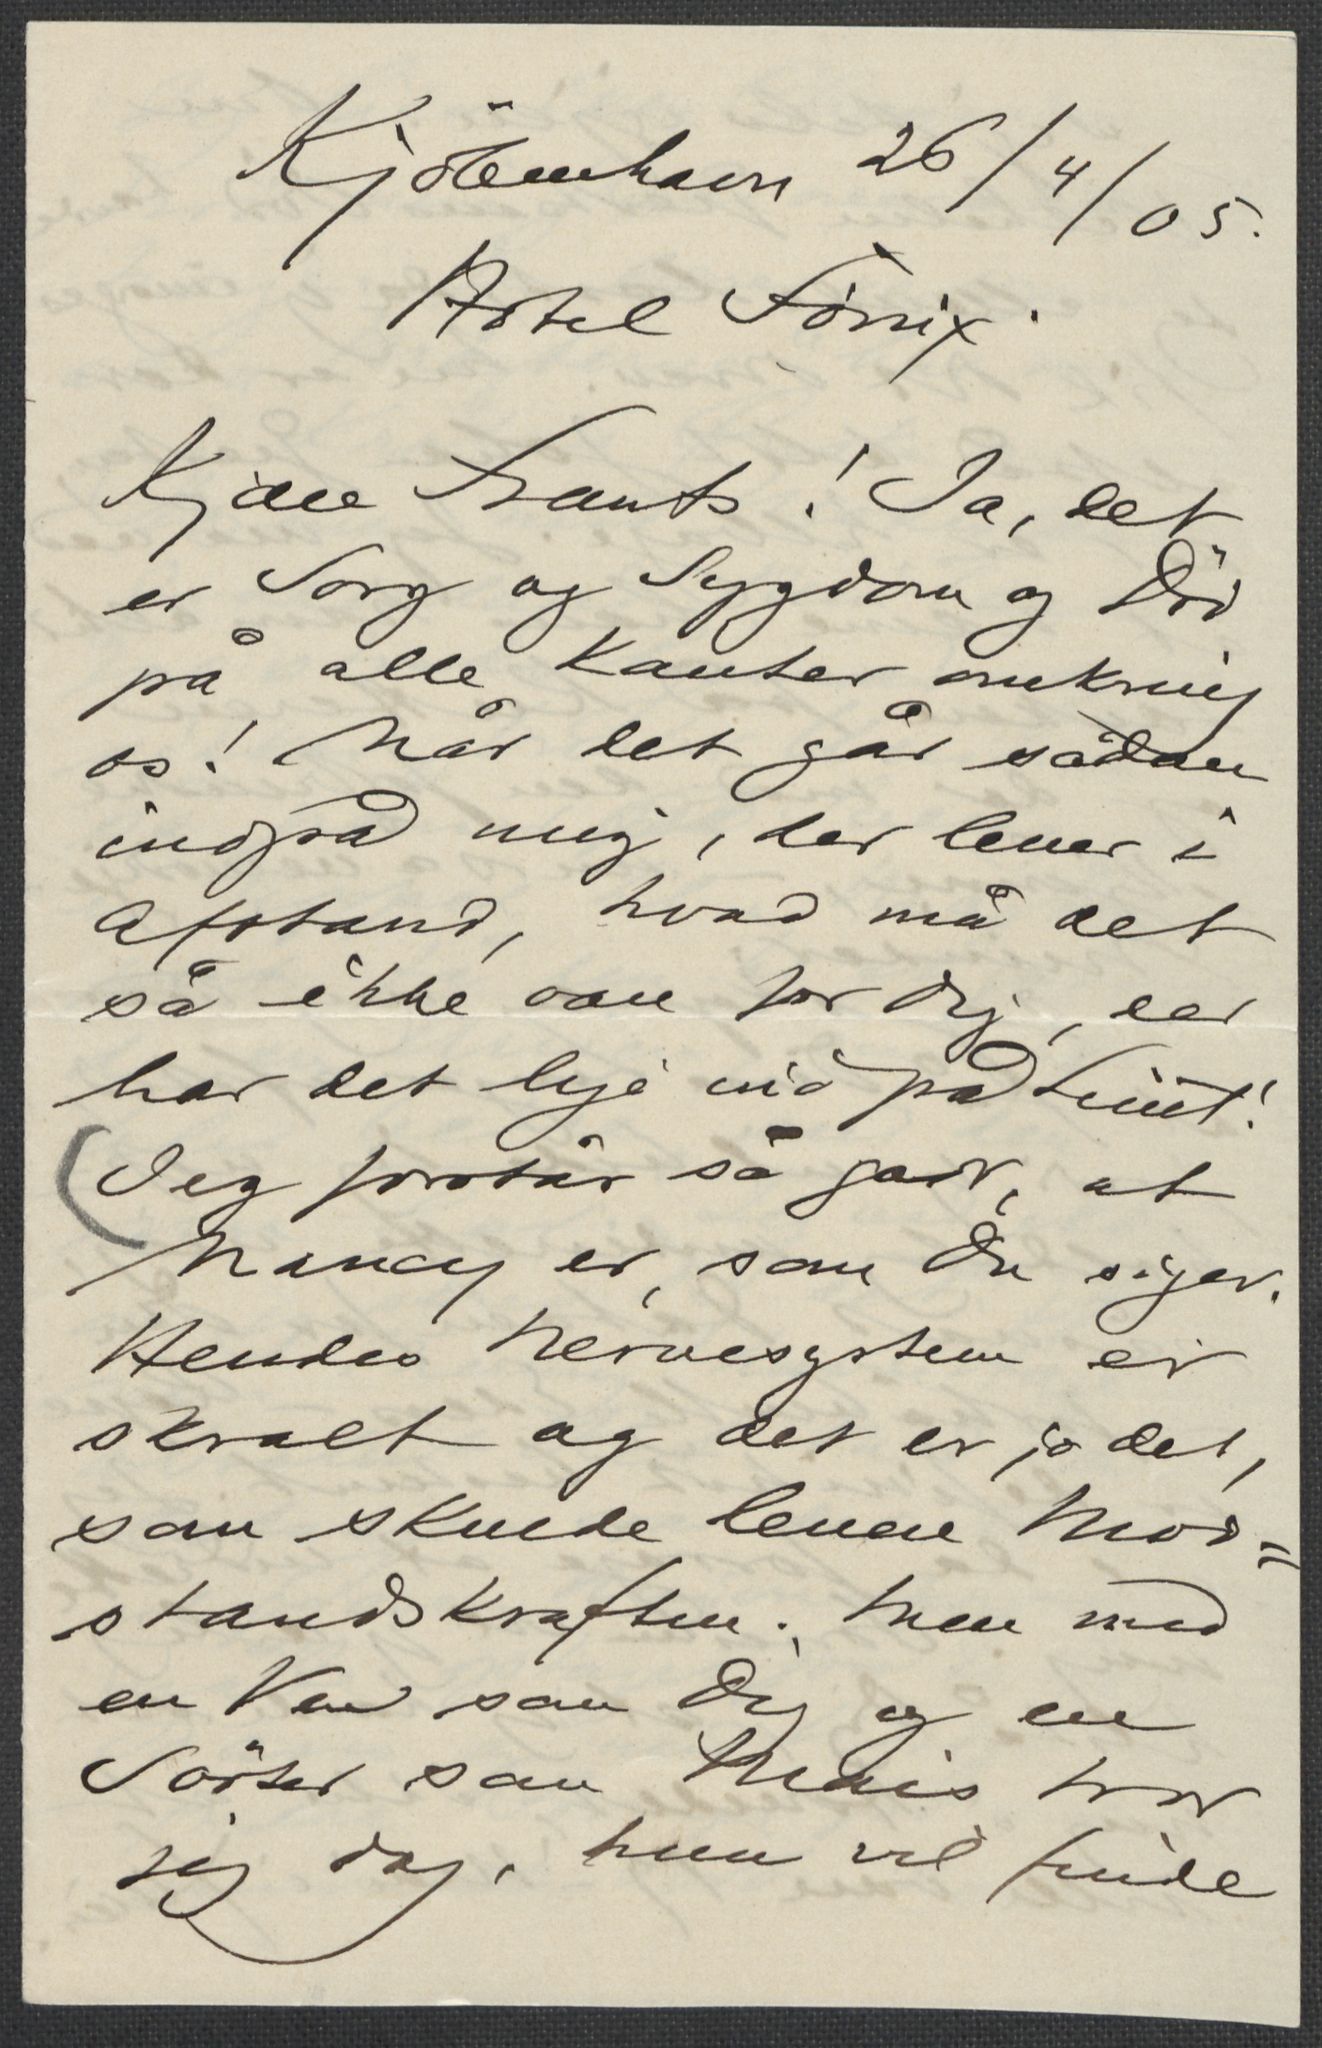 Kjöbenhavn 26/4/05.
Hotel Fönix.
Kjære Frants! Ja, det
er Sorg og Sygdom og Död
på alle Kanter omkring
os! Når det går sådan
indpå mig, der lever i
Afstand, hvad må det
så ikke være for Dig, der
har det lige ind på Livet!
(Jeg forstår så godt, at
Nancy er, som Du siger.
Hendes Nervesystem er
skralt og det er jo det,
som skulde levere Mod=
standskraften. Men med
en Ven som Dig og en
Söster som Mais tror
jeg dog, hun vil finde